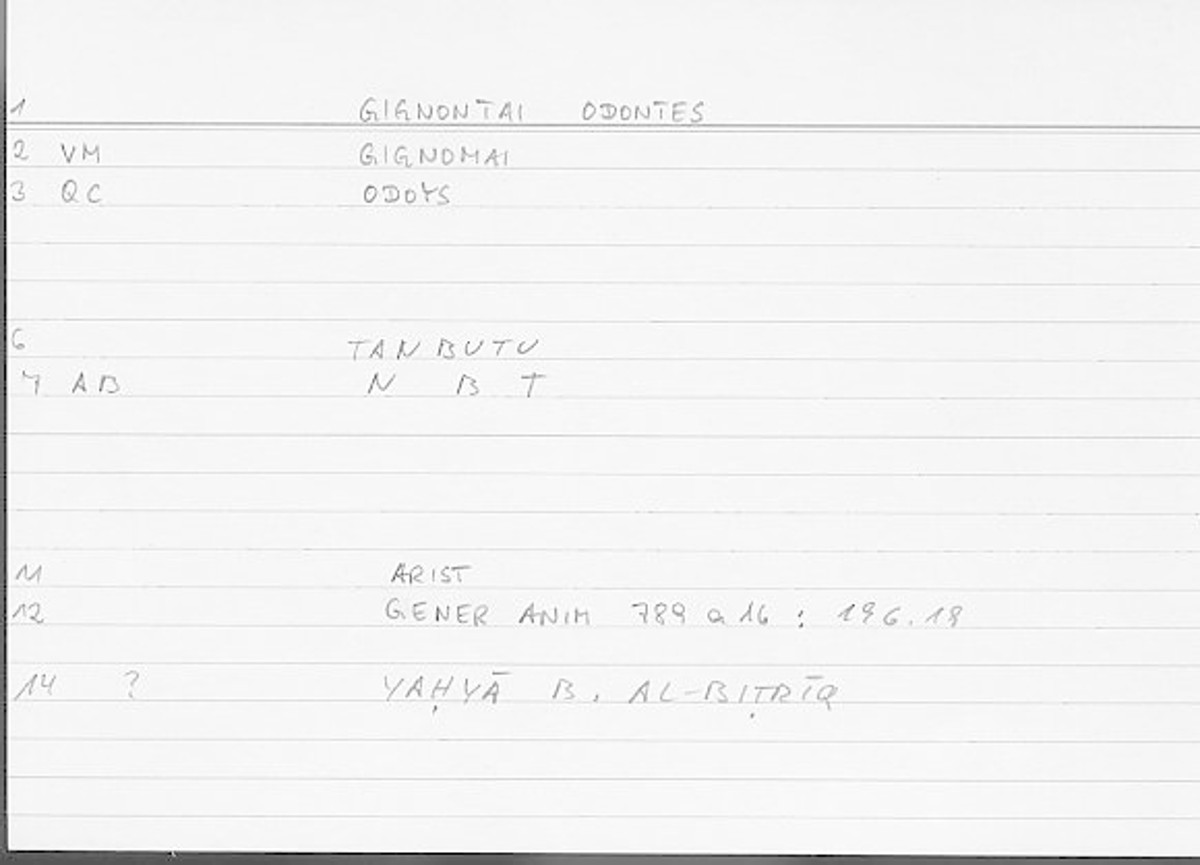 1 GIGNONTAI ODONTES
2 VM GIGNOMAI
3 QC ODOYS
6 TANBUTU
7 AB N B T
11 ARIST
12 GENER ANIM 789 a 16 : 196.18
14 ? YAḤYĀ B. AL-BIṬRĪQ